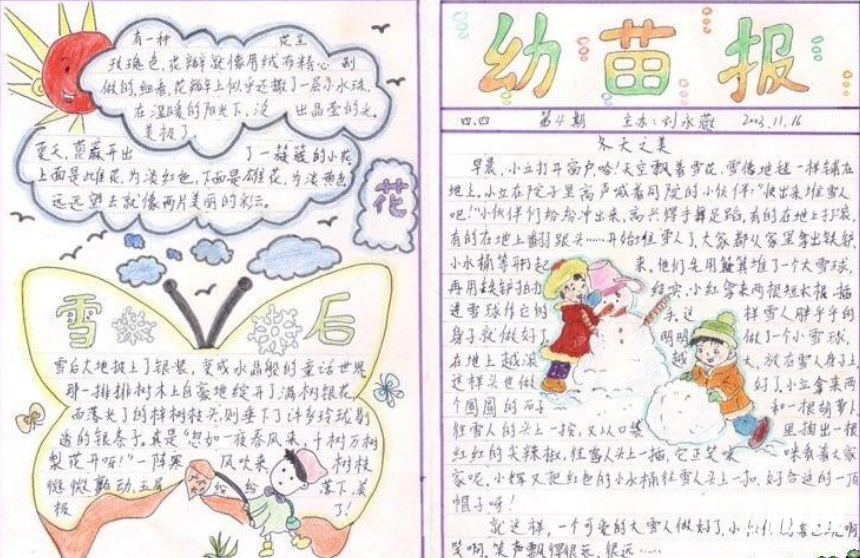 有一种 花呈
玫瑰色,花瓣就像用绒布精心制
做的,细看,花瓣上似乎还撒了一层小水珠,
在温暖的阳光下,泛 出晶莹的光。
美极了。
夏天,蔷薇开出 了一簇簇的小花,
上面是雌花,为淡红色,下面是雄花,为淡黄色,
远远望去就像两片美丽的彩云。
花
雪 后
雪后大地披上了银装,变成水晶般的童话世界。
那一排排树木上自豪地绽开了满树银花,
而落光了的梓树枝头,则垂下了许多玲珑剔
透的银条子。真是“忽如一夜春风来,千树万树
梨花开呀!”一阵寒 风吹来, 树枝
微微颤动,玉屑 纷 纷 落下,美
极 了!
幼苗报
四.四 第4期 主办:刘永薇 2003.11.16
冬天之美
早晨,小立打开窗户哈!天空飘着雪花,雪像地毯一样铺在
地上,小立在院子里高声喊着同院的小伙伴:“快出来堆雪人
吧!”小伙伴们纷纷冲出来,高兴得手舞足蹈,有的在地上打滚,
有的在地上翻跟头……开始堆雪人了,大家都从家里拿出铁铲
小水桶等开起 来。他们先用簸箕堆了一个大雪球,
再用铁铲拍打 结实,小红拿来两根短木棍,插
进雪球作它的 手,这 样雪人胖乎乎的
身子就做好了, 明明 做了一个小雪球,
在地上越滚 越 大,放在雪人身上,
这样头也做 好了,小立拿来两
个圆圆的石子 和一根胡萝卜
往雪人的头上一按,又从口袋 里掏出一根
红红的尖辣椒,往雪人头上一插,它正笑咪 咪看着大家
家呢。小辉又把红色的小水桶往雪人头上一扣,好合适的一顶
帽子呀!
就这样,一个可爱的大雪人做好了,小
笑啊,笑声飘得很远,很远……